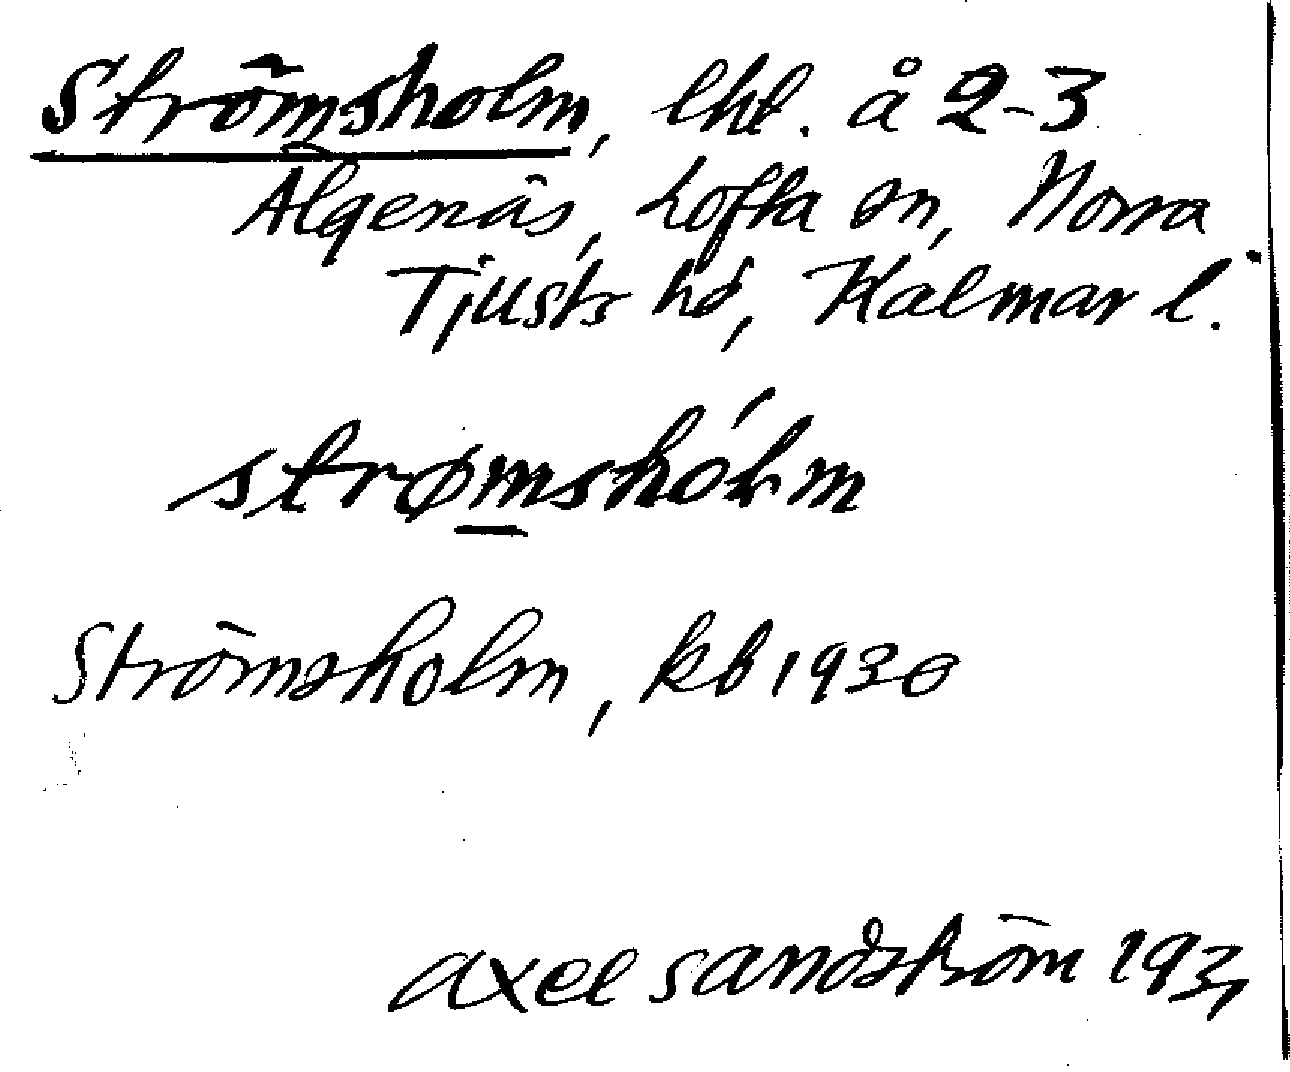 Strömsholm, lht. å 2-3
Älgenäs, Lofta sn, Norra
Tjusts hd, Kalmar l.
strømshólm
Strömsholm, kb 1930
Axel Sandström 193